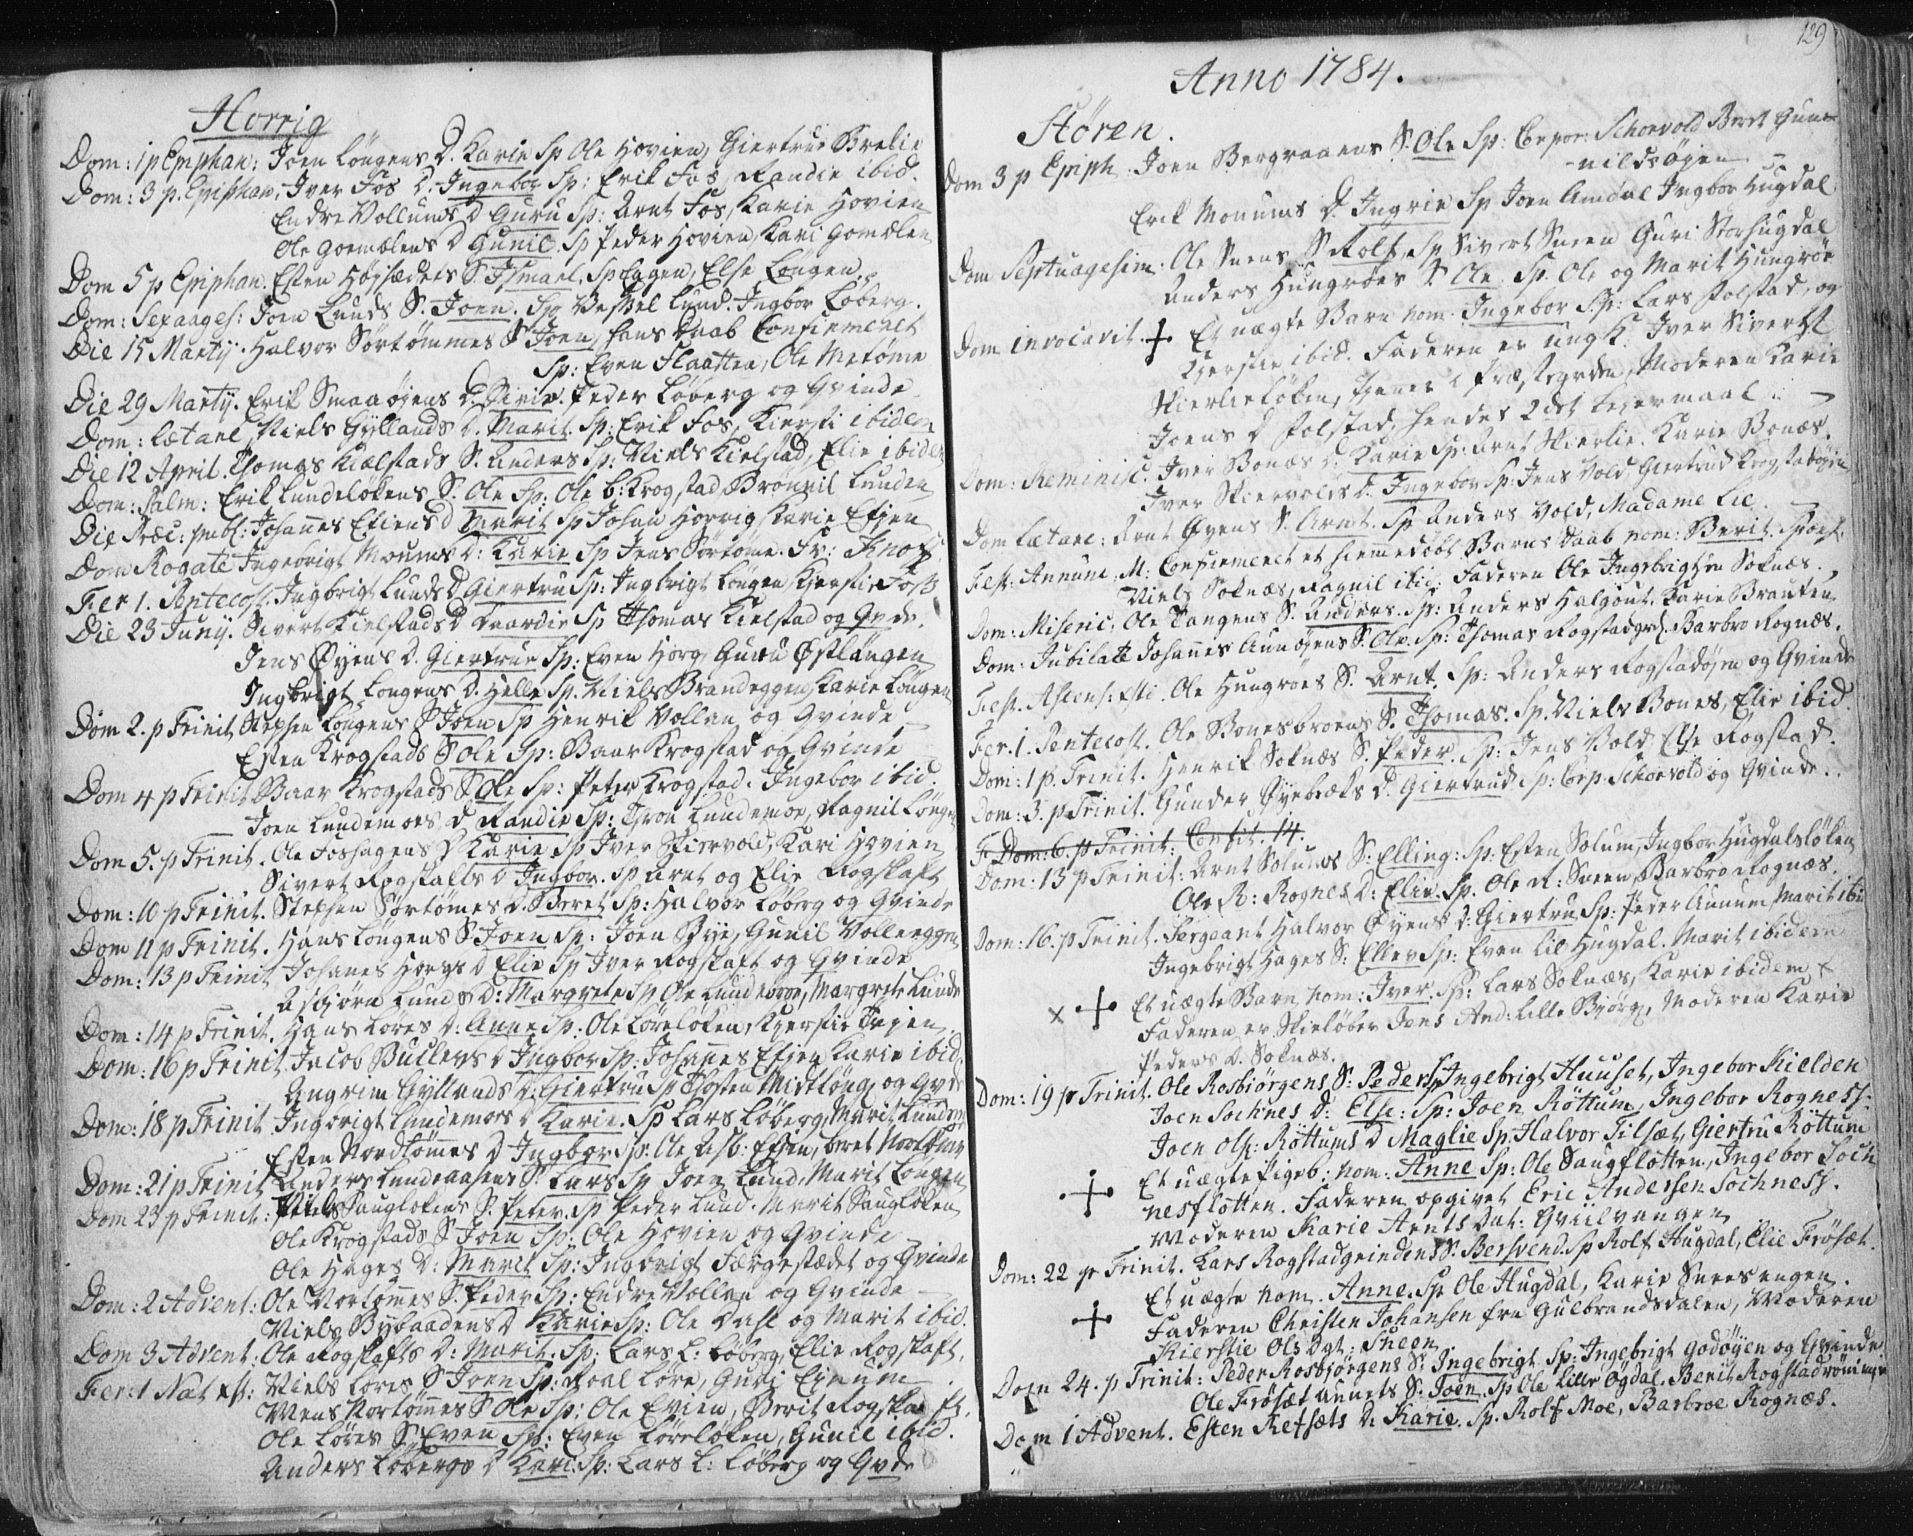 Horrig
Dom: 1 p Epiphan: Joen Löngens D. Karie Sp Ole Hovien, Giertrue Brekie
Dom: 3 p. Epiphan, Iver Fos D. Ingebor Sp: Erik Fos, Randie ibid.
Endre Vollums D Guru Sp: Arnt Fos, Karie Hovien
Ole Gomælens D Gunil Sp Peder Hovien, Kari Gomælen
Dom 5 p Epiphan. Esten Højsæders S. Ismael, Sp Eggen, Else Løngen.
Dom: Sexages: Joen Lunds S. Joen. Sp Lund. Ingbor Løberg.
Die 15 Martÿ. Halvor Sörtömmes S Joen, hans Daab Confirmeret
Sp: Even Flaatten, Ole Metömme
Die 29 Martÿ. Erik Smaaøjens D. Sirie. Peder Løberg og Qvinde
Dom: Lætare, Niels Gÿllands D. Marit Sp: Erik Fos, Kiersti ibidem
Die 12 April. Thomas Kielstads S. Anders Sp: Niels Kielstad, Elie ibidem
Dom: Palm: Erik Lundeløkens S. Ole Sp: Ole b: Krogstad, Brønnil Lunden
Die Præc: publ: Johañes Efiens D Marit Sp Johan Horrig, Karie Efien
Dom Rogate Ingebrigt Moums D: Karie Sp Jens Sörtöme. Fr: Knoff
Fer 1. Pentecost. Ingbrigt Lunds D Giertru Sp: Ingbrigt Løngen, Kierstie Foss
Die 23 Junÿ. Sivert Kielstads D Sp Thomas Kielstad og Qvde.
Jens Øyens D. Giertrue Sp: Even Horg, Guru Østlángen
Ingbrigt Longens D. Helle Sp. Niels Brandeggen, Karie Löngen
Dom 2. p Trinit Stephen Longens S Joen Sp Henrik Vollan og Qvinde
Esten Krogstads S Ole Sp: Baar Krogstad og Qvinde
Dom 4 p Trinit Baar Krogstads S Ole Sp: Peter Krogstad. Ingebor ibid.
Joen Lundemoes D Randie Sp: Tron Lundemoe, Ragnil Löngen
Dom 5. p Trinit. Ole Foshagens D Karie Sp Iver Skiervold, Kari Hovien
Sivert Rogstafts D Ingbor. Sp Arnt og Elie Rogstaft
Dom: 10 p Trinit. Stephen Sørtømes D. Beret Sp: Halvor Løberg og Qvinde
Dom 11 p Trinit. Hans Löngens S Joen Sp: Joen Bye, Gunil Volleeggen
Dom: 13 p Trinit Johanes Horgs D Elie Sp Iver Rogstaft og Qvinde
Asbjörn Lunds D: Margrete Sp Ole Lundebroe, Margrete Lunde
Dom: 14 p Trinit. Hans Løres D: Anne Sp. Ole Løreløken, Kierstie
Dom: 16 p Trinit Jacob Bucklers D Ingbor Sp: Johañes Efien Karie ibid.
Angrim Gÿllands D: Giertru Sp Thosten Midtlöng, og Qvde
Dom: 18 p Trinit Ingbrigt Lundemoes D Karie. Sp Lars Løberg, Marit Lundem
Esten Nordtömmes D Ingbor Sp: Ole Asb: Efien, beret
Dom: 21 p Trinit Anders Lundeaasens S. Lars Sp Joen Lund, Marit Longen
Dom 23 p Trinit: Peder Sauglökens S. Peter. Sp Peder Lund. Marit Saugløken
Ole Krogstads S Joen Sp: Ole Hovien og Qvinde
Ole Hages D: Marit Sp: Ingbrigt Færgestædet og Qvinde
Dom: 2 Advent: Ole Nortömmes S. Peder Sp: Endre Vollan og Qvinde
Niels Bybaadens D Karie Sp: Ole Dahl og Marit ibid.
Dom 3 Advent: Ole Rogstafts D: Marit. Sp: Lars L: Løberg, Elie Rogstaft.
Fer: 1 Nat. xti: Niels Løres S Joen Sp: Roal Løre, Guri
Mens Nortömes S Ole Sp: Ole Evien, Berit Rogstaft.
Ole Løres S. Even Sp: Even Løreløken, Gunil ibid.
Anders Løbergs D Kari: Sp: Lars L: Løberg og Qvde
129
Anno 1784.
Støren.
Dom 3 p Epiph. Joen Bergraaens S. Ole Sp: Corpor: Schoevold Beret Gun-
nildsøjen
Erik Monums D. Ingrie Sp Joen Amdal Ingbor Hugdal
Dom Septuagesim: Ole Snens S Rolf. Sp Sivert Sneen Guri Storhugdal
Anders Hungröes S. Ole. Sp. Ole og Marit Hungröe
Dom invocavit. Et uægte Barn nom. Ingebor Sp: Lars Polstad, og
Kierstie ibid. Faderen er ung K. Iver Sivertst
Skierlieløken, tiener i Præstegrden, Moderen Karie
Joens D Polstad, hendes 2det Leyermaal
Dom: Reminisc. Iver Bonæs D. Karie Sp: Arnt Skierlie. Karie Bonæs.
Iver Skiervolds D. Ingebor Sp: Jens Vold, Giertrud Krogstadøjen
Dom Lætare: Arnt Øyens S. Arnt. Sp Anders Vold, Madame Lie
Fest: Annunc. M: Confirmeret et hiemedøbt Barns Daab nom: Berit.
Niels Soknæs, Ragnil ibid: Faderen Ole Ingebrigtsen Soknæs.
Dom: Miseric: Ole Tangens S. Anders. Sp: Anders Halgout, Karie Brauten
Dom: Jubilate Johañes Aunøjens S. Ole. Sp: Thomas Rogstadgrd. Barbro Rognæs.
Fest. Ascens: xsti. Ole Hungröes S. Arnt. Sp: Anders Rogstadøjen og Qvinde
Fer. 1. Pentecost. Ole Bonesbroens S. Thomas. Sp. Niels Bones, Elie ibid
Dom: 1 p. Trinit. Henrik Soknæs S. Peder. Sp: Jens Vold Else Rogstad.
Dom: 3. p Trinit. Gunder Øyebæks D. Giertrud. Sp: Corp. Schoevold og Qvinde.
F Dom: 6. p Trinit: Confit. 14.
Dom: 13 p Trinit: Arnt Solums S. Elling: Sp: Esten Solum, Ingbor Hugdalsløken
Ole R: Rognes D: Elie. Sp. Ole R: Sneen, Barbro Rognæs.
Dom: 16. p Trinit. Sergeant Halvor Øyens D: Giertru Sp: Peder Aunum Marit ibid
Ingebrigt Hages S: Ellev Sp: Even lil Hugdal. Marit ibidem
x Et uægte Barn, nom: Iver. Sp: Lars Soknæs, Karie ibidem x
Faderen er Skieløber Jens And: lille Byörg, Moderen Karie
Peders D. Soknæs.
Dom: 19 p Trinit. Ole Rosbiörgens S: Peder Sp Ingebrigt Huuset, Ingebor Kielden
Joen Sochnes D: Else: Sp: Joen Röttum, Ingebor Rogness.
Joen Ols: Röttums D Maglie Sp. Halvor Tilset, Giertru Röttum
Et uægte Pigeb. nom. Anne Sp: Ole Saugflotten, Ingebor Soch
nesflotten. Faderen opgivet Eric Andersen Sochness.
Moderen Karie Arnts Dat: Qviilvangen
Dom: 22 p Trinit. Lars Rogstadgrindens S. Bersvend. Sp Rolf Hugdal, Elie Frösæt.
Et uægte nom. Anne. Sp Ole Hugdal, Karie Sneesengen.
Faderen Christen Johansen fra Gulbrandsdalen, Moderen
Kierstie Ols Dgt: Sneen
Dom 24. p Trinit: Peder Rosbjørgens S. Ingebrigt Sp: Ingebrigt Godøyen og Qvinde
Ole Frösæt Aunets S: Joen. Sp Ole Lille Ögdal. Berit
Dom 1 Advent. Esten Refsæts D: Karie. Sp. Rolf Moe, Barbroe Rognæs.